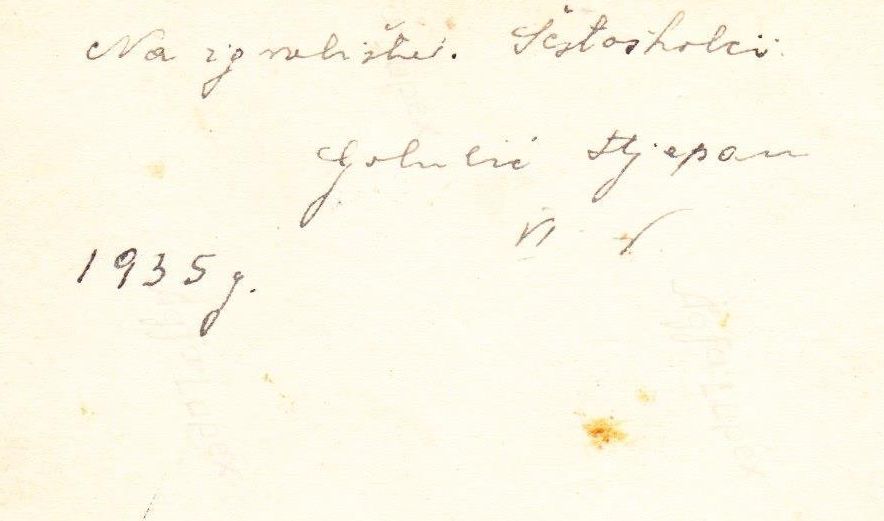 Na igralištu. Šestoškolci.
Golubić Stjepan
VI r
1935 g.